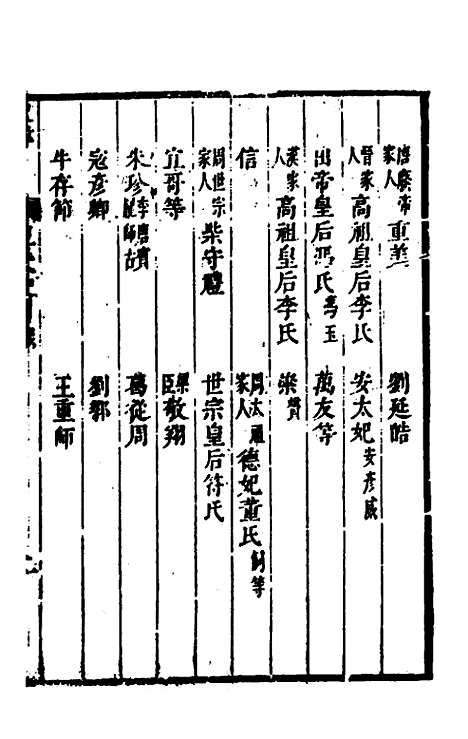 唐廢帝家人 重美 劉延皓
晉家人 高祖皇后李氏 安太妃 安彥威
出帝皇后馮氏 馮玉 萬友等
漢家人 高祖皇后李氏 贇
信 周太祖家人 德妃董氏 侗等
周世宗家人 柴守禮 世宗皇后符氏
宜哥等 梁臣 敬翔
朱珍 李唐賓 龐師古 葛從周
寇彥卿 劉鄩
牛存節 王重師